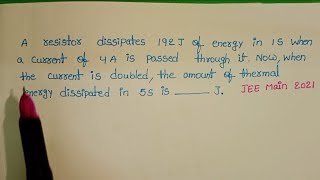 A resistor dissipates 192 J of energy in 1S when
a current of 4A is passed through it. Now, when
the current is doubled, the amount of thermal
energy dissipated in 5S is _____ J. JEE Main 2021